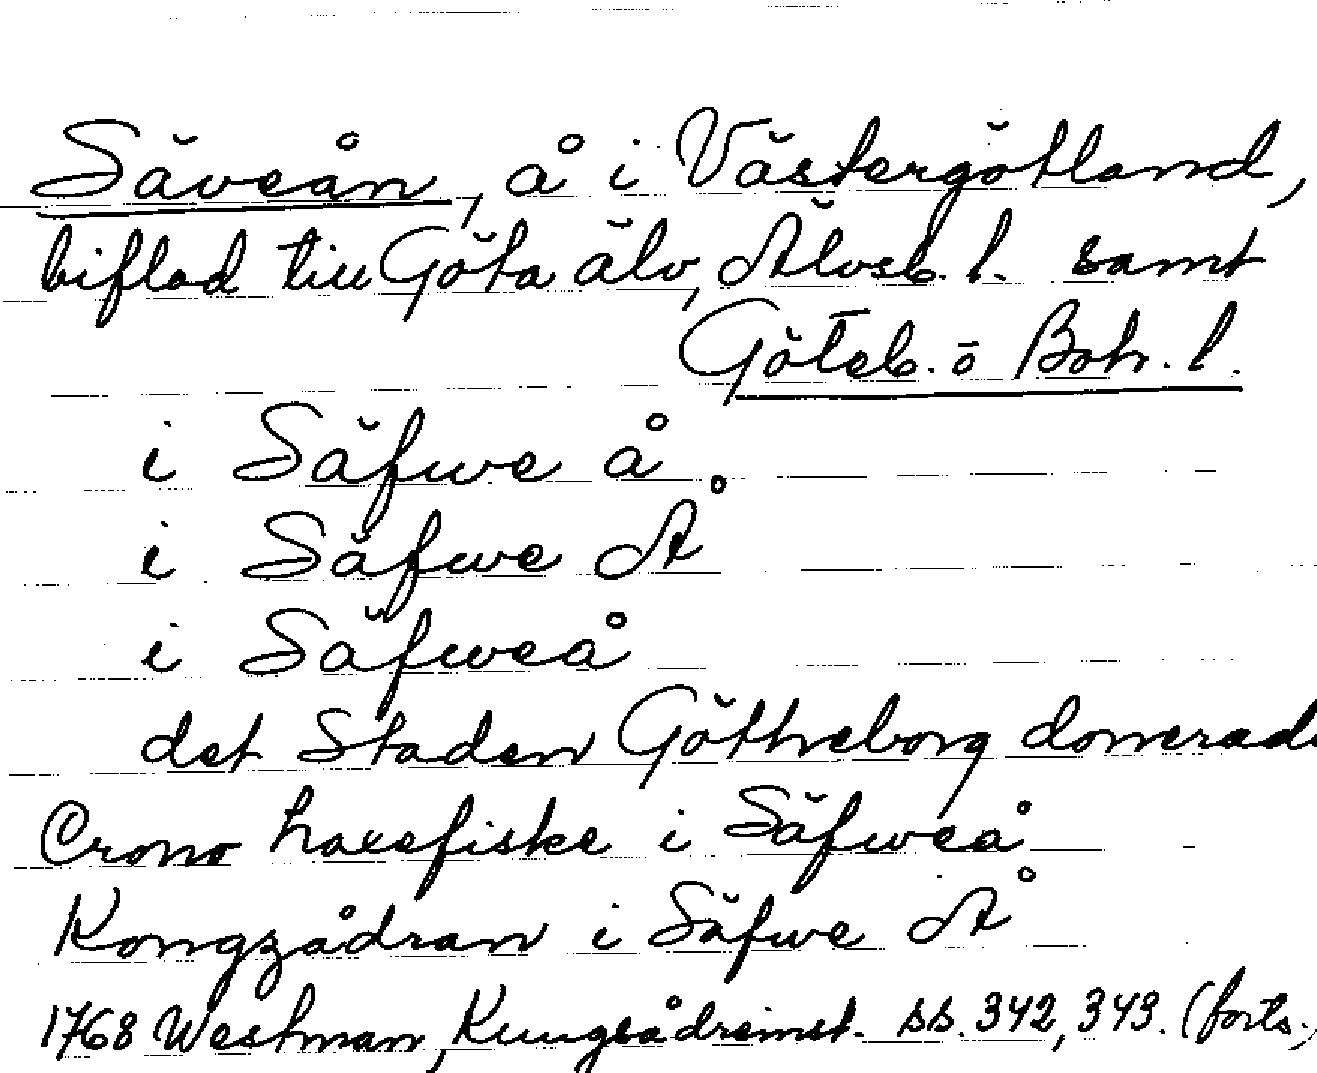 Säveån, å i Västergötland,
biflod till Göta älv, Älvsb. l. samt
Göteb. o Boh. l.
i Säfwe å
i Säfwe Å
i Säfweå
det Staden Götheborg donerade
Crono laxefiske i Säfweå
Kongzådran i Säfwe Å
1768 Westman, Kungsådreinst. ss. 342, 343. (forts.)